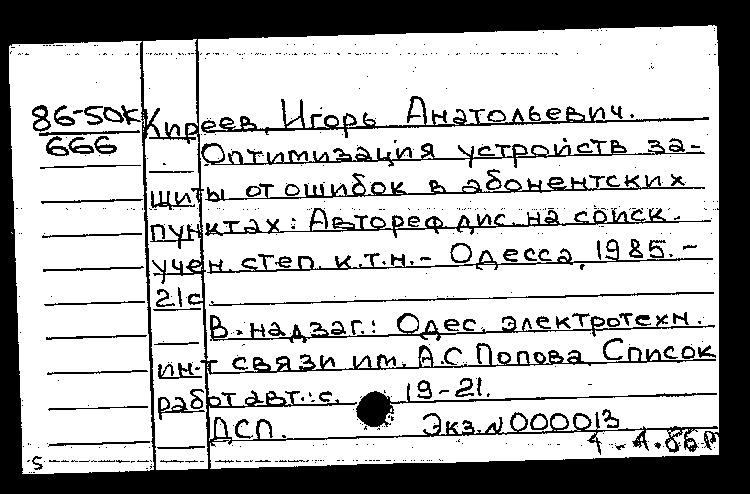 86-50к Киреев, Игорь Анатольевич.
666 Оптимизация устройств за-
щиты от ошибок в абонентских
пунктах: Автореф дис. на соиск.
учен. степ. к.т.н. - Одесса, 1985. -
21с.
В. надзаг.: Одес. электротехн.
ин-т связи им. А.С Попова. Список
работ авт.: с. 19-21.
ДСП. Экз. N000013
5